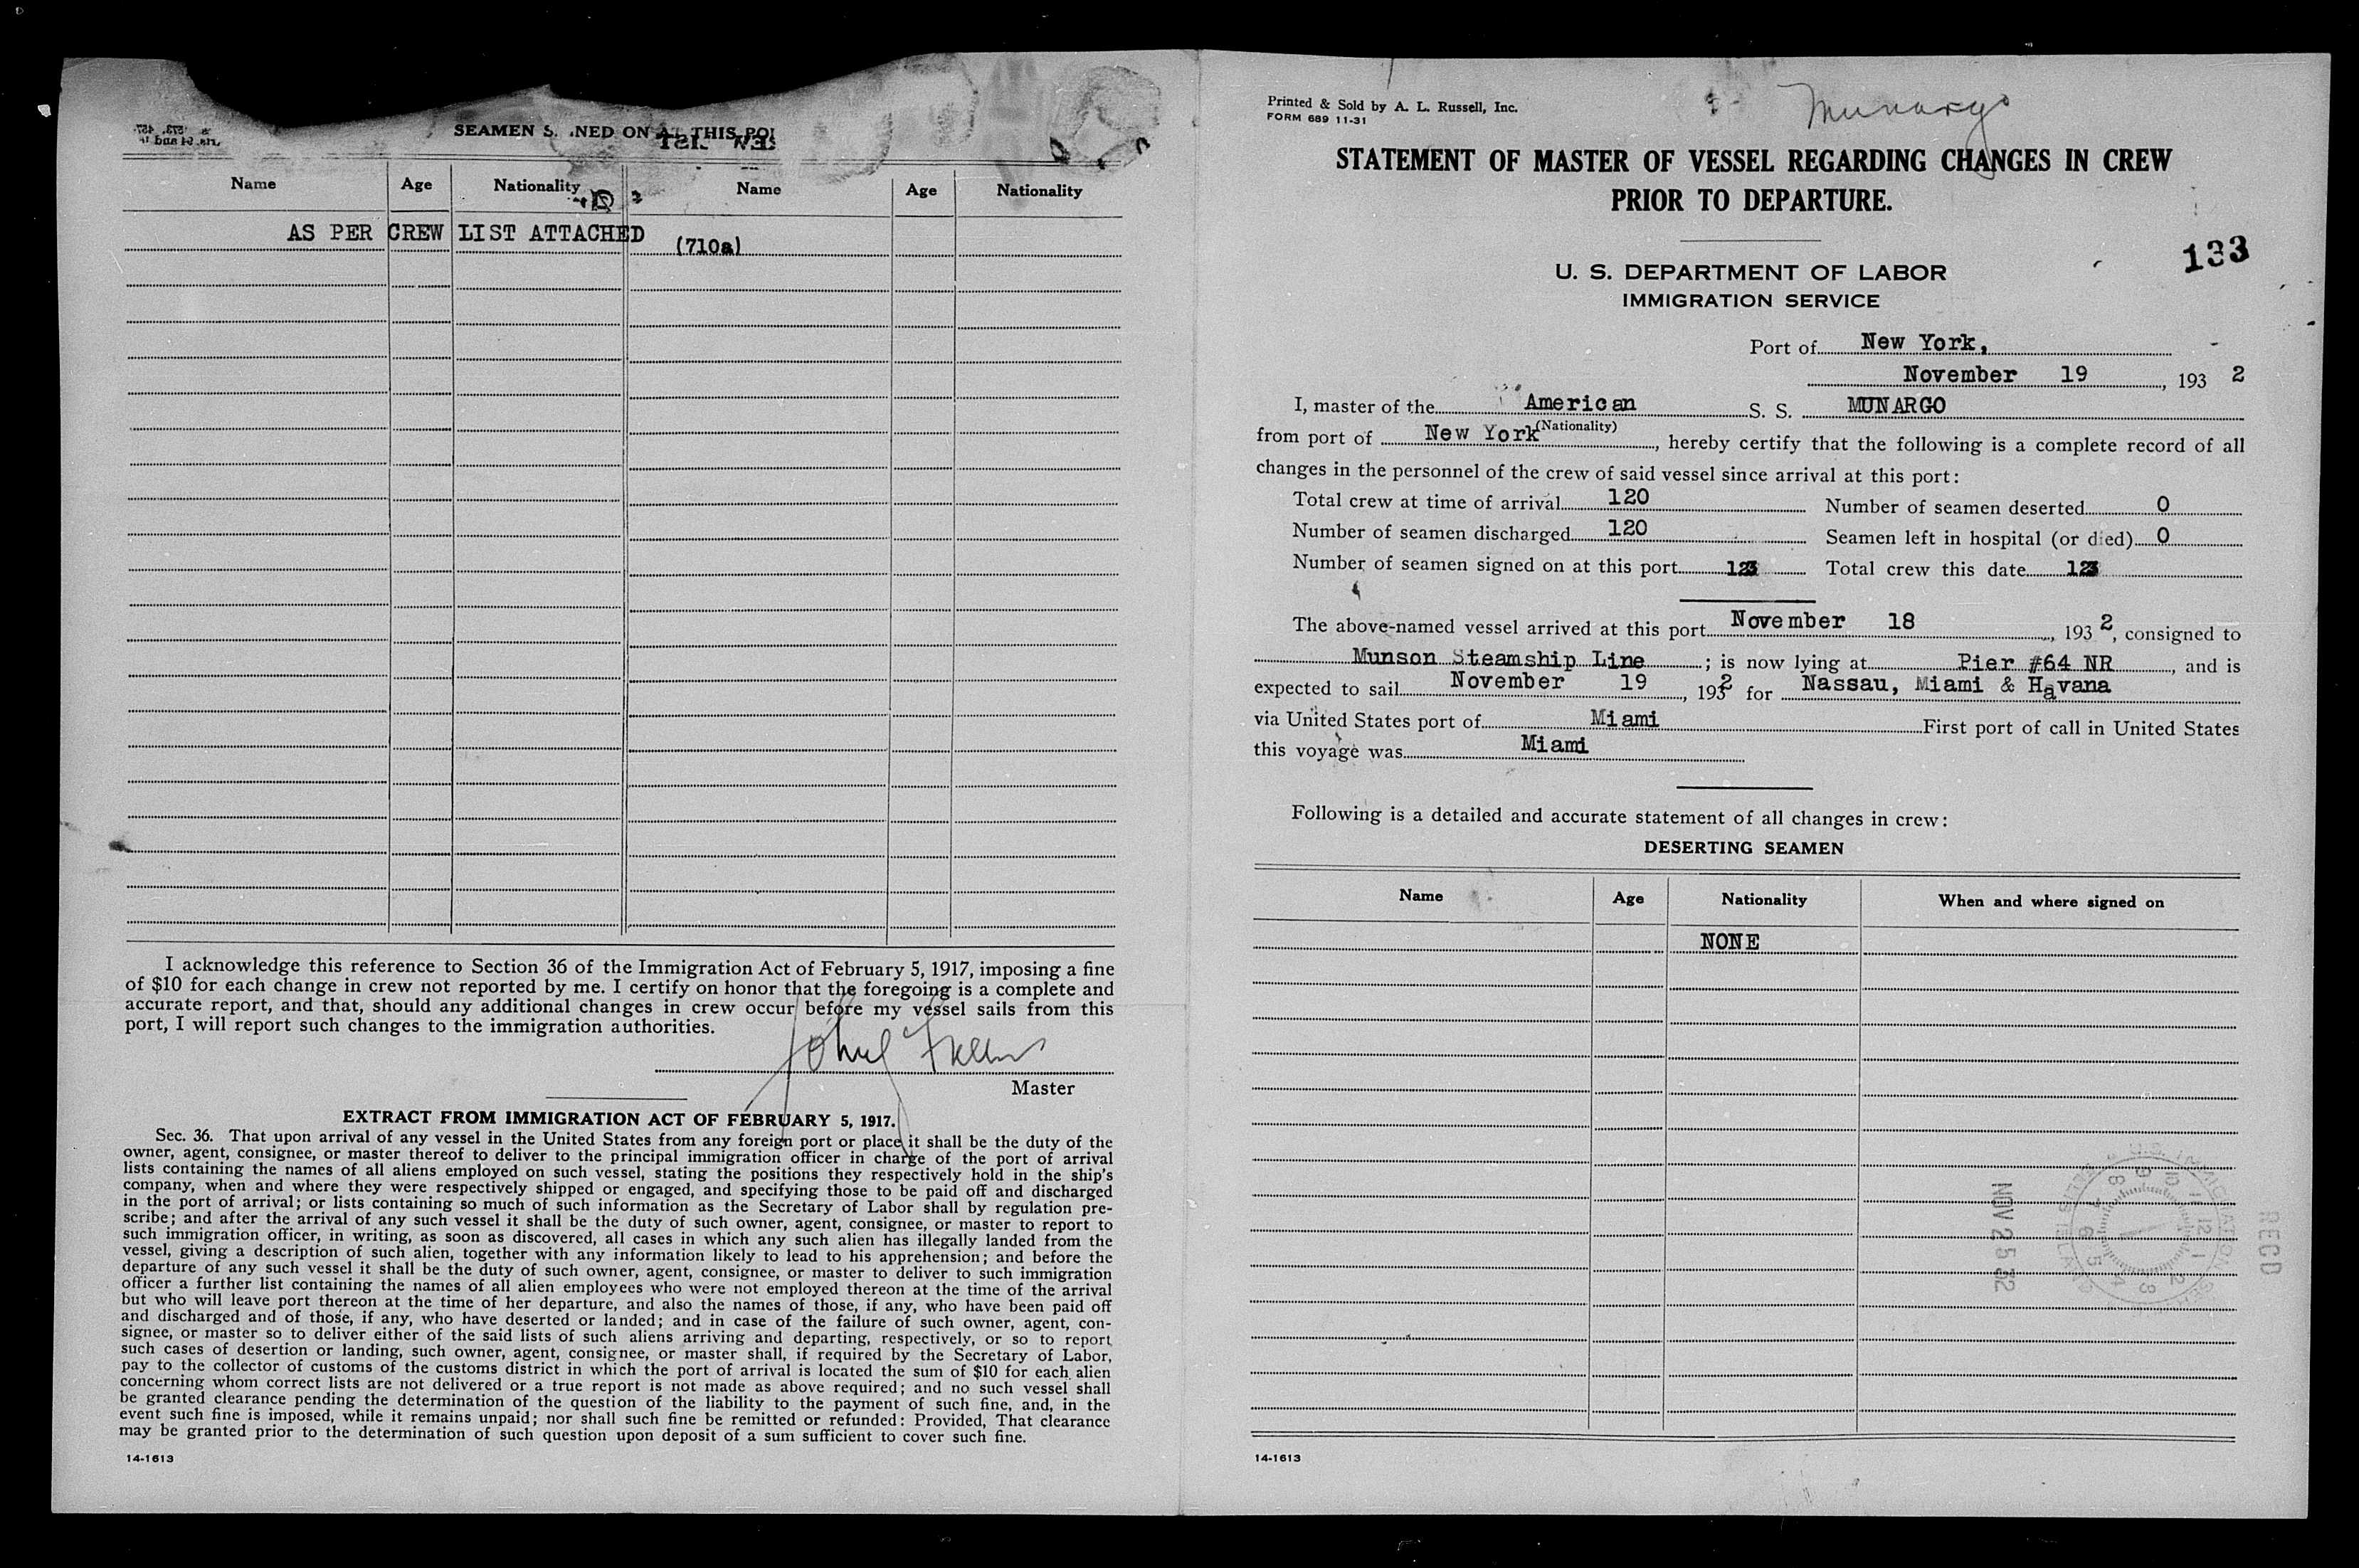 SEAMEN S. NED ON AT THIS POI
Name Age Nationality Name Age Nationality
AS PER CREW LIST ATTACHED (710a)
I acknowledge this reference to Section 36 of the Immigration Act of February 5, 1917, imposing a fine
of $10 for each change in crew not reported by me. I certify on honor that the foregoing is a complete and
accurate report, and that, should any additional changes in crew occur before my vessel sails from this
port, I will report such changes to the immigration authorities.
Master
EXTRACT FROM IMMIGRATION ACT OF FEBRUARY 5, 1917.
Sec. 36. That upon arrival of any vessel in the United States from any foreign port or place it shall be the duty of the
owner, agent, consignee, or master thereof to deliver to the principal immigration officer in charge of the port of arrival
lists containing the names of all aliens employed on such vessel, stating the positions they respectively hold in the ship's
company, when and where they were respectively shipped or engaged, and specifying those to be paid off and discharged
in the port of arrival; or lists containing so much of such information as the Secretary of Labor shall by regulation pre-
scribe; and after the arrival of any such vessel it shall be the duty of such owner, agent, consignee, or master to report to
such immigration officer, in writing, as soon as discovered, all cases in which any such alien has illegally landed from the
vessel, giving a description of such alien, together with any information likely to lead to his apprehension; and before the
departure of any such vessel it shall be the duty of such owner, agent, consignee, or master to deliver to such immigration
officer a further list containing the names of all alien employees who were not employed thereon at the time of the arrival
but who will leave port thereon at the time of her departure, and also the names of those, if any, who have been paid off
and discharged and of those, if any, who have deserted or landed; and in case of the failure of such owner, agent, con-
signee, or master so to deliver either of the said lists of such aliens arriving and departing, respectively, or so to report
such cases of desertion or landing, such owner, agent, consignee, or master shall, if required by the Secretary of Labor,
pay to the collector of customs of the customs district in which the port of arrival is located the sum of $10 for each alien
concerning whom correct lists are not delivered or a true report is not made as above required; and no such vessel shall
be granted clearance pending the determination of the question of the liability to the payment of such fine, and, in the
event such fine is imposed, while it remains unpaid; nor shall such fine be remitted or refunded: Provided, That clearance
may be granted prior to the determination of such question upon deposit of a sum sufficient to cover such fine.
14-1613
Printed & Sold by A. L. Russell, Inc.
FORM 689 11-31
Munargo
STATEMENT OF MASTER OF VESSEL REGARDING CHANGES IN CREW
PRIOR TO DEPARTURE.
133
U. S. DEPARTMENT OF LABOR
IMMIGRATION SERVICE
Port of New York,
November 19, 193 2
I, master of the American S. S. MUNARGO
(Nationality)
from port of New York, hereby certify that the following is a complete record of all
changes in the personnel of the crew of said vessel since arrival at this port:
Total crew at time of arrival 120 Number of seamen deserted 0
Number of seamen discharged 120 Seamen left in hospital (or died) 0
Number of seamen signed on at this port 123 Total crew this date 123
The above-named vessel arrived at this port November 18, 193 2, consigned to
Munson Steamship Line; is now lying at Pier #64 NR, and is
expected to sail November 19, 193 2 for Nassau, Miami & Havana
via United States port of Miami First port of call in United States
this voyage was Miami
Following is a detailed and accurate statement of all changes in crew:
DESERTING SEAMEN
Name Age Nationality When and where signed on
NONE
RECD
NOV 25 32
14-1613